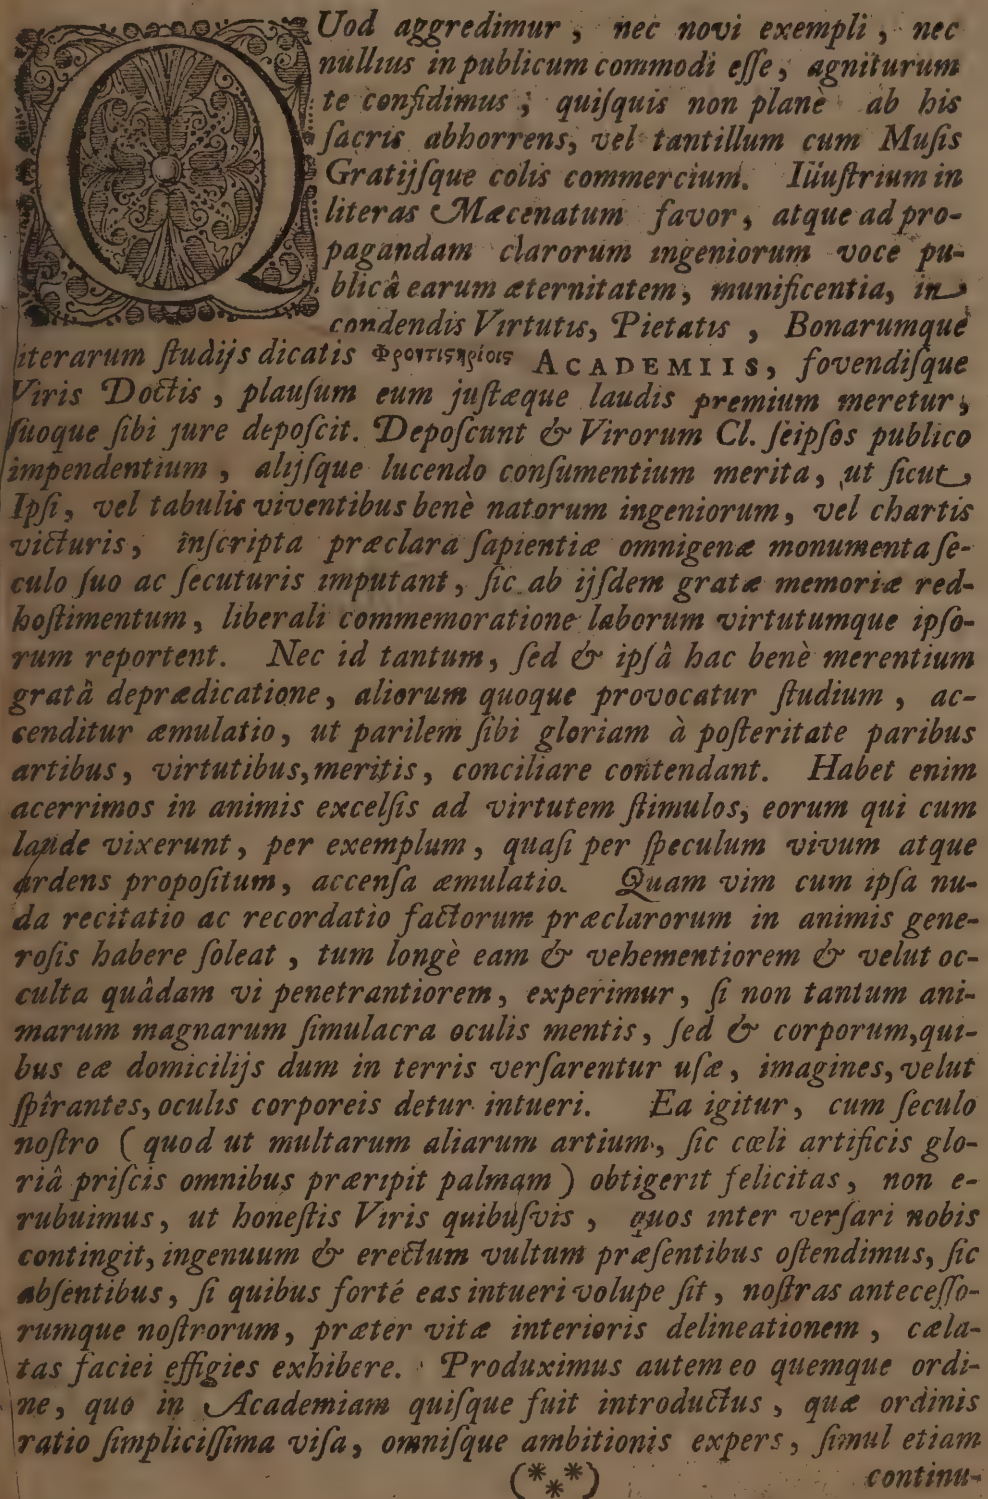 QUod aggredimur, nec novi exempli, nec
nullius in publicum commodi eſſe, agniturum
te confidimus; quiſquis non planè ab his
ſacris abhorrens, vel tantillum cum Muſis
Gratijſque colis commercium. Illuſtrium in
literas Mæcenatum favor, atque ad pro-
pagandam clarorum ingeniorum voce pu-
blicâ earum æternitatem, munificentia, in
condendis Virtutis, Pietatis, Bonarumque
literarum ſtudijs dicatis Φροντιςηρίοις ACADEMIIS, fovendiſque
Viris Doctis, plauſum eum juſtæque laudis premium meretur,
ſuoque ſibi jure depoſcit. Depoſcunt & Virorum Cl. ſeipſos publico
impendentium, alijſque lucendo conſumentium merita, ut ſicut
Ipſi, vel tabulis viventibus benè natorum ingeniorum, vel chartis
victuris, inſcripta præclara ſapientiæ omnigenæ monumenta ſe-
culo ſuo ac ſecuturis imputant, ſic ab ijſdem gratæ memoriæ red-
hoſtimentum, liberali commemoratione laborum virtutumque ipſo-
rum reportent. Nec id tantum, ſed & ipſâ hac benè merentium
gratâ deprædicatione, aliorum quoque provocatur ſtudium, ac-
cenditur æmulatio, ut parilem ſibi gloriam à poſteritate paribus
artibus, virtutibus, meritis, conciliare contendant. Habet enim
acerrimos in animis excelſis ad virtutem ſtimulos, eorum qui cum
laude vixerunt, per exemplum, quaſi per ſpeculum vivum atque
ardens propoſitum, accenſa æmulatio. Quam vim cum ipſa nu-
da recitatio ac recordatio factorum præclarorum in animis gene-
roſis habere ſoleat, tum longè eam & vehementiorem & velut oc-
culta quâdam vi penetrantiorem, experimur, ſi non tantum ani-
marum magnarum ſimulacra oculis mentis, ſed & corporum, qui-
bus eæ domicilijs dum in terris verſarentur uſæ, imagines, velut
ſpîrantes, oculis corporeis detur intueri. Ea igitur, cum ſeculo
noſtro (quod ut multarum aliarum artium, ſic cœli artificis glo-
riâ priſcis omnibus præripit palmam) obtigerit felicitas, non e-
rubuimus, ut honeſtis Viris quibuſvis, quos inter verſari nobis
contingit, ingenuum & erectum vultum præſentibus oſtendimus, ſic
abſentibus, ſi quibus forté eas intueri volupe ſit, noſtras anteceſſo-
rumque noſtrorum, præter vitæ interioris delineationem, cæla-
tas faciei effigies exhibere. Produximus autem eo quemque ordi-
ne, quo in Academiam quiſque fuit introductus, quæ ordinis
ratio ſimpliciſſima viſa, omniſque ambitionis expers, ſimul etiam
(***) continu-